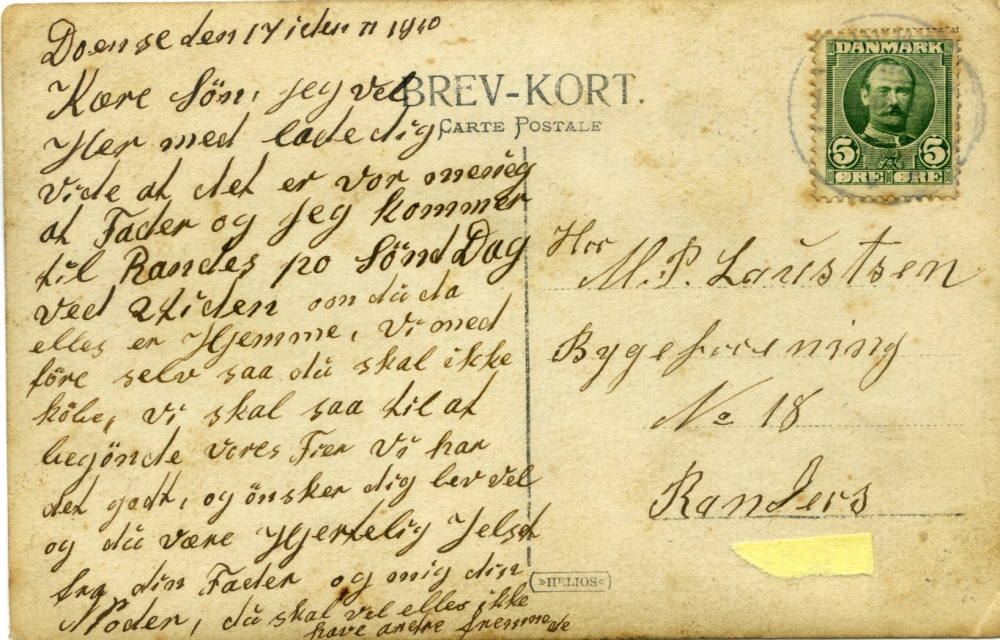 Doense den 17 iden 11 1910
Kære Sön, jeg vel
Her med lade dig
Vide at det er vor menig
at Fader og jeg kommer
til Randes po Sönd Dag
ved 2 tiden om du da
elles er Hjemme, Vi med
före selv saa du skal ikke
köbe, Vi skal saa til at
begönde vores Fier Vi har
det godt, og önsker dig lev vel
og du være Hjertelig Helset
fra din Fader og mig din
Moder, du skal vel elles ikke
have andre fremmede
BREV-KORT.
CARTE POSTALE
DANMARK
5 5
ØRE ØRE
Hrr
M. P. Laustsen
Bygeforening
No 18
Randers
»HELIOS«